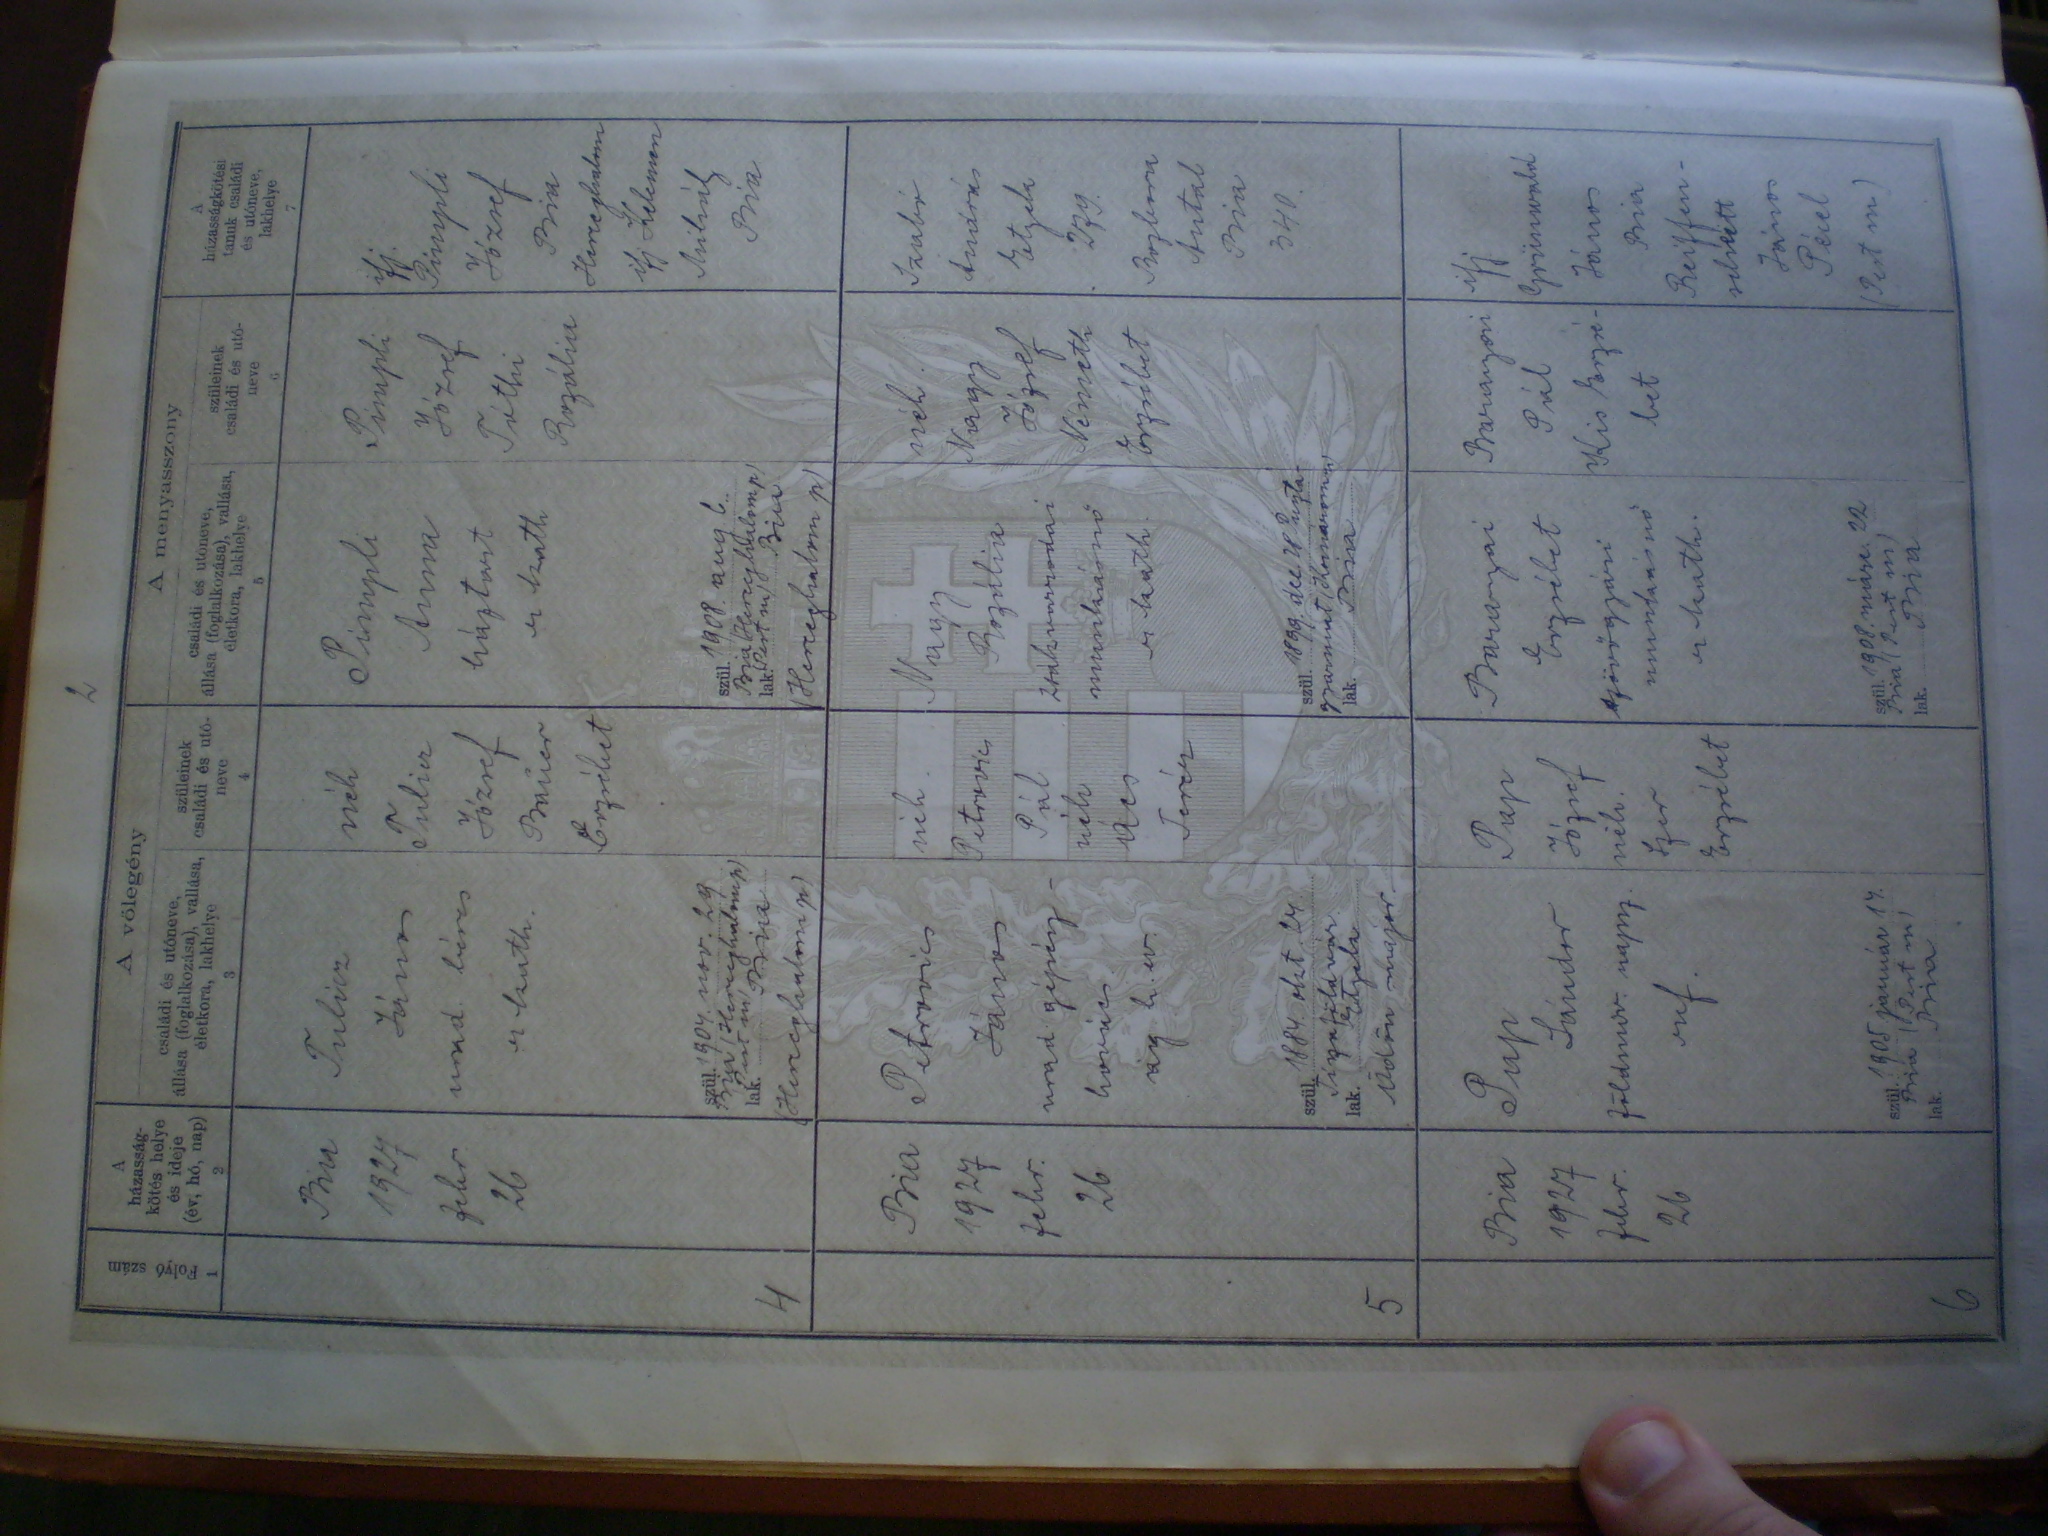 2
A vőlegény
A menyasszony
Folyó
szám
1
A
házasság-
kötés helye
és ideje
(év, hó, nap)
2
családi és utóneve,
állása (foglalkozása), vallása,
életkora, lakhelye
3
szüleinek
családi és utó-
neve
4
családi és utóneve,
állása (foglalkozása), vallása,
életkora, lakhelye
5
szüleinek
családi és utó-
neve
6
A
házasságkötési
tanuk családi
és utóneve,
lakhelye
7
4
Bia
1927
febr.
26
János
urad. béres
r kath.
szül. 1904. nov. 29
Bia (Herceghalomp)
Pest m) Bia
lak.
(Herceghalom p)
néh
József
Bauer
Erzsébet
Pimpli
Anna
háztart
r kath
szül. 1908 aug 6.
Bia (Herceghalomp)
lak. Pest m) Bia
(Herceghalom p)
Pimpli
József
Tóthi
Rozália
ifj.
Pimpli
József
Bia
Herceghalom
ifj Kelemen
Mihály
Bia
5
Bia
1927
febr.
26
Petrovics
János
urad gépész-
kovács
ág. h. ev.
szül. 1884. okt. 24.
lak. Etyek
Ödön major
néh.
Petrovics
Pál
néh
Ács
Teréz
Nagy
Rozália
munkásnő
r kath.
szül. 1899. dec. 28 Puszta
gyarmat (Komárom m)
lak. Bia
néh.
Nagy
József
Németh
Erzsébet
Szabó
András
Etyek
279.
Antal
Bia
340.
6
Bia
1927
febr.
26
Pap
Sándor
földmív. napsz.
ref.
szül. 1905 január 17.
Bia (Pest m)
lak. Bia
Pap
József
néh.
Szer
Erzsébet
Baranyai
Erzsébet
munkásnő
r kath.
szül. 1908 márc. 22
Bia (Pest m)
lak. Bia
Baranyai
Pál
Kis Erzsé-
bet
ifj
Grünwald
János
Bia
János
Pécel
(Pest m)